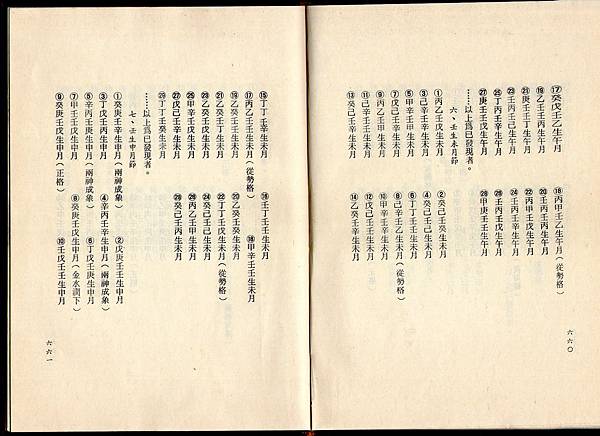 ⑰癸戊壬乙生午月 ⑱丙甲壬乙生午月(從勢格)
⑲乙壬壬丙生午月 ⑳壬丙壬丙生午月
㉑庚丁壬丁生午月 ㉒丙甲壬戊生午月
㉓壬丙壬己生午月 ㉔壬丙壬辛生午月
㉕丁壬壬辛生午月 ㉖壬丙壬壬生午月
㉗庚壬壬戊生午月 ㉘甲庚壬壬生午月
……以上爲已發現者。
六、壬生未月節
①丙乙壬戊生未月 ②癸己壬癸生未月
③己辛壬辛生未月 ④癸己壬己生未月
⑤辛甲壬甲生未月 ⑥丁丁壬壬生未月
⑦戊己壬丁生未月 ⑧己辛壬乙生未月(從勢格)
⑨丙乙壬甲生未月(從勢格) ⑩甲辛壬辛生未月
⑪己辛壬壬生未月 ⑫戊己壬壬生未月
⑬癸己壬辛生未月 ⑭乙癸壬辛生未月
六六〇
⑮丁丁壬辛生未月 ⑯壬丁壬丁生未月
⑰丙乙壬壬生未月(從勢格) ⑱甲辛壬壬生未月
⑲乙癸壬乙生未月 ⑳乙癸壬癸生未月
㉑乙癸壬壬生未月 ㉒丁丁壬戊生未月(從勢格)
㉓乙癸壬戊生未月 ㉔癸己壬壬生未月
㉕甲辛壬戊生未月 ㉖丙乙壬丁生未月
㉗戊己壬戊生未月 ㉘癸己壬丙生未月
㉙丁丁壬癸生未月
……以上爲已發現者。
七、壬生申月節
①癸庚壬辛生申月(兩神成象) ②戊庚壬壬生申月
③丁戊壬丙生申月 ④辛丙壬辛生申月(兩神成象)
⑤辛丙壬庚生申月(兩神成象) ⑥丁戊壬庚生申月
⑦甲壬壬戊生申月 ⑧癸庚壬壬生申月(金水潤下)
⑨癸庚壬戊生申月(正格) ⑩壬戊壬壬生申月
六六一